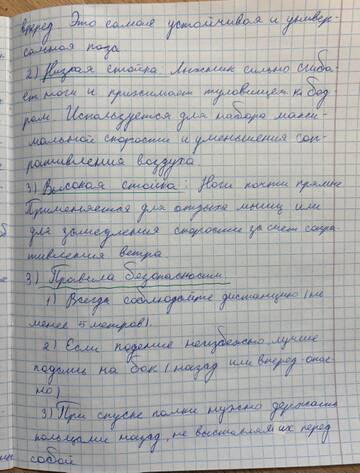 вперёд. Это самая устойчивая и универ-
сальная поза
2) Низкая стойка. Лыжник сильно сгиба-
ет ноги и прижимает туловище к бёд
рам. Используется для набора макси-
мальной скорости и уменьшения соп-
ротивления воздуха.
3) Высокая стойка: Ноги почти прямые
Применяется для отдыха мышц или
для замедления скорости за счет сопро
тивления ветра
3.) Правила безопасности
1) Всегда соблюдайте дистанцию (не
менее 5 метров).
2) Если падение неизбежно лучше
падать на бок (назад или вперед опас
но)
3) При спуске палки нужно держать
кольцами назад, не выставляя их перед
собой